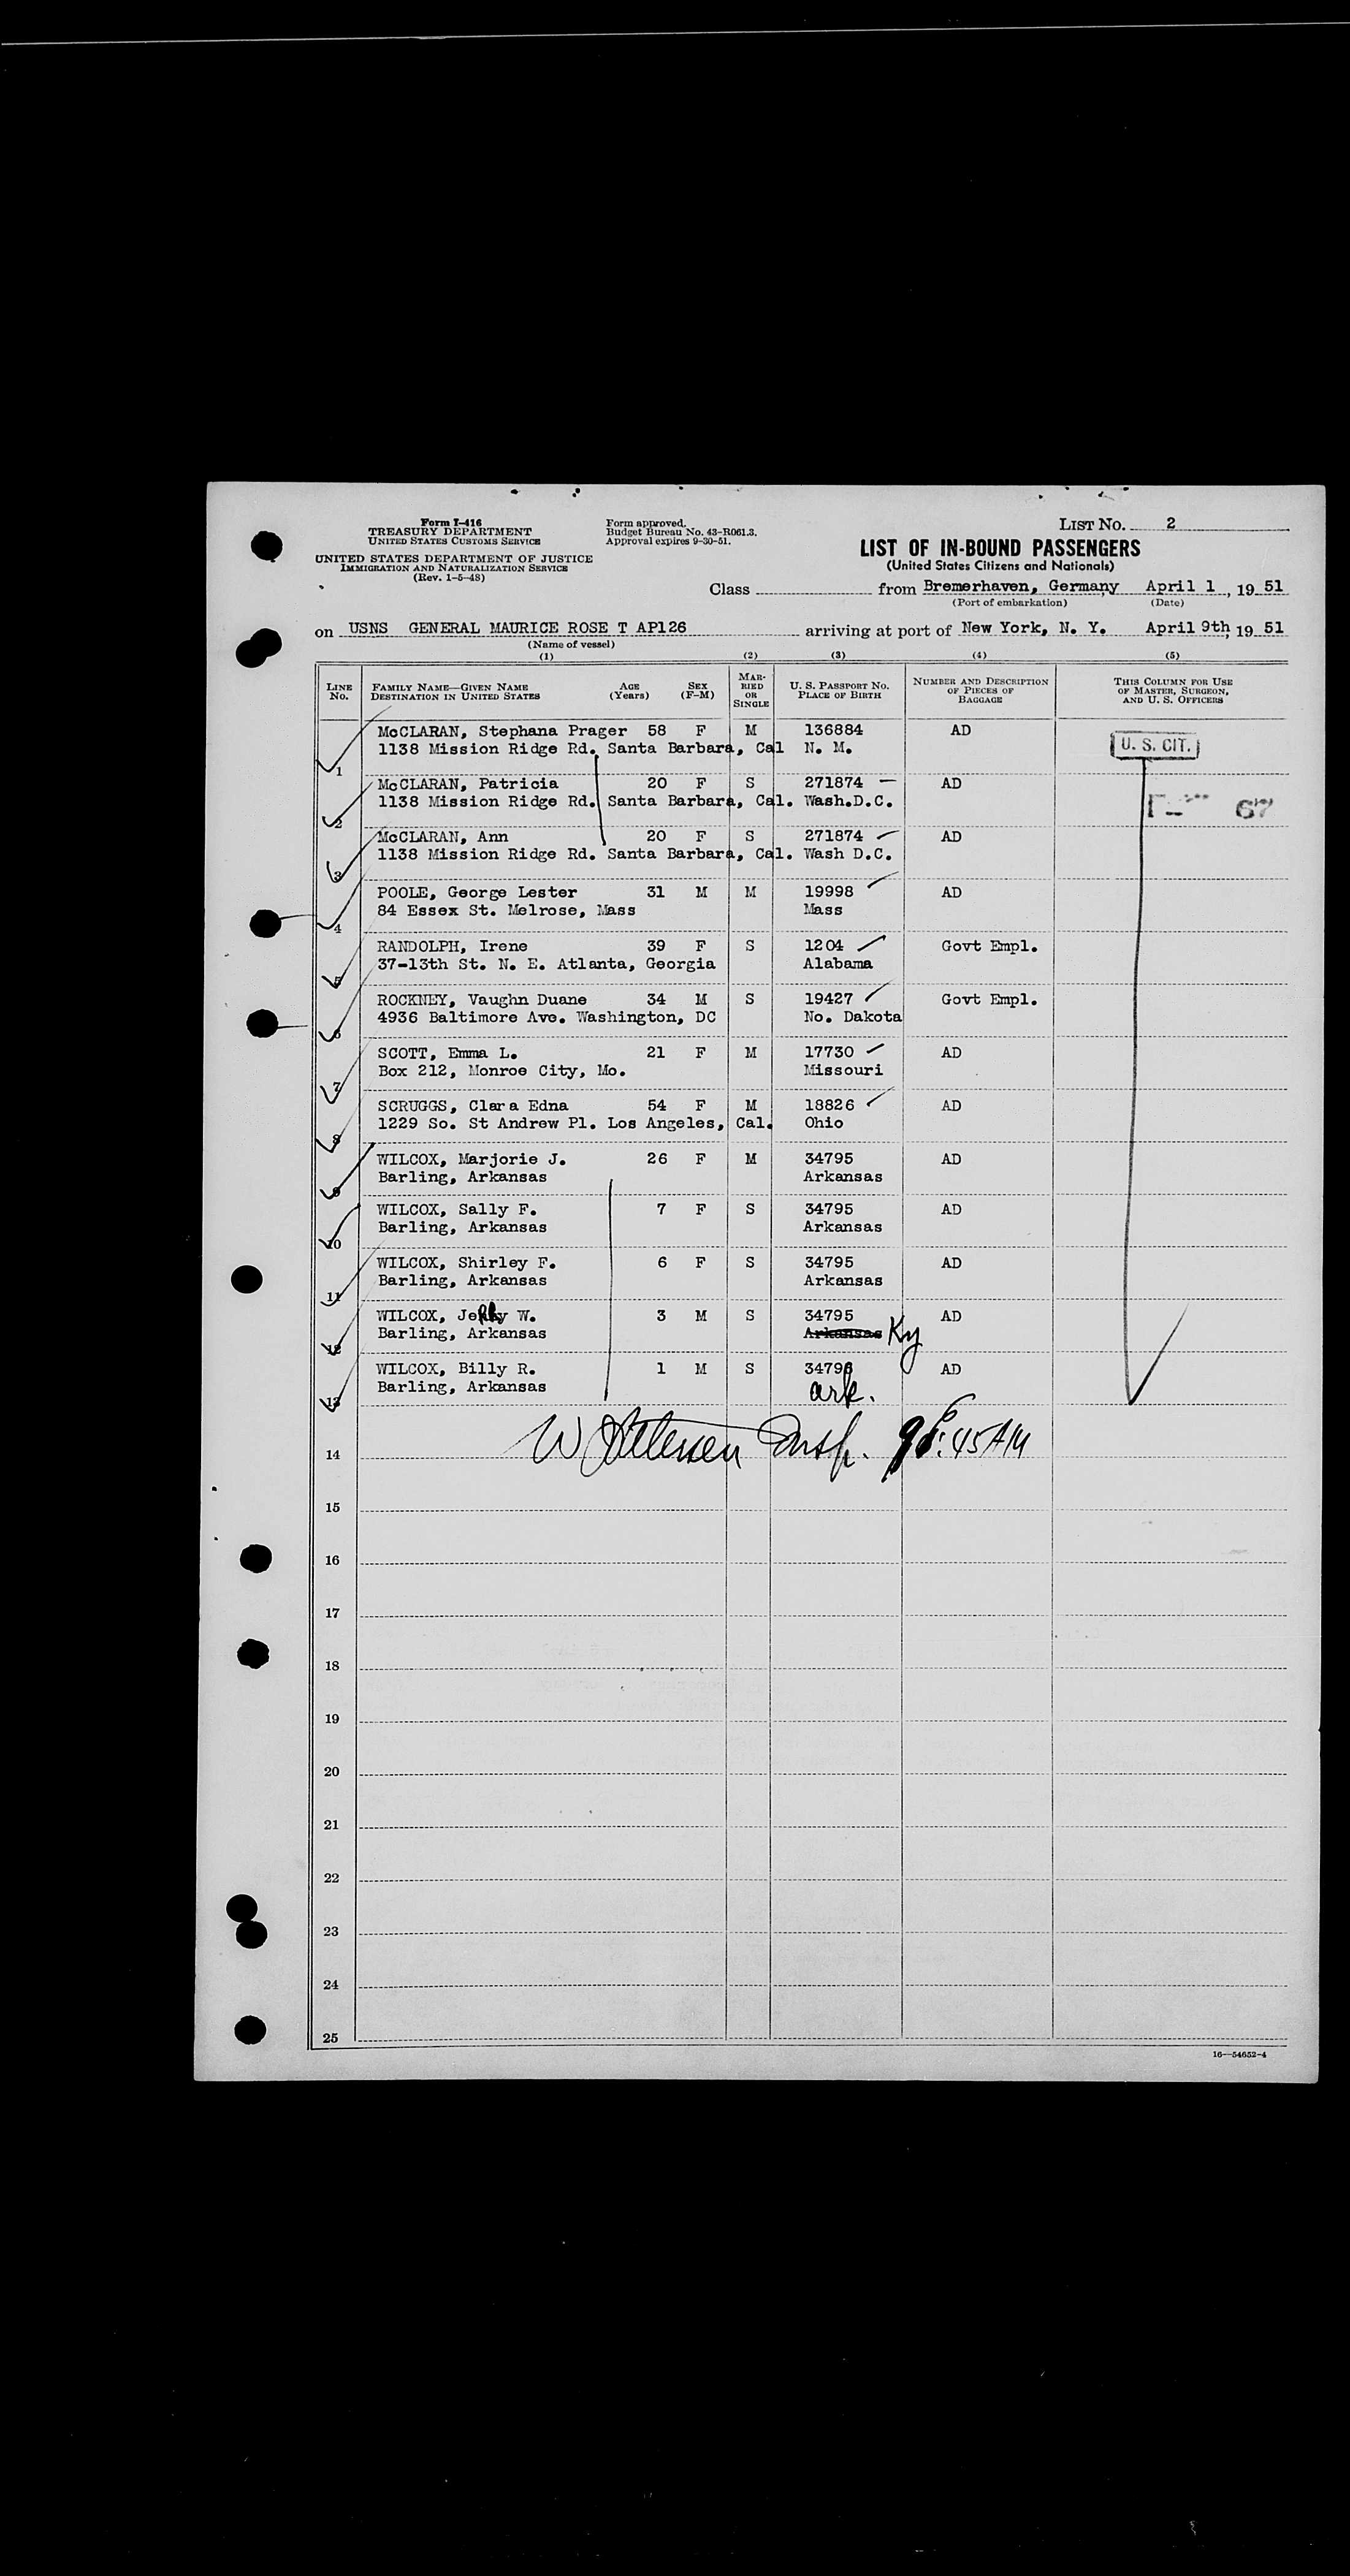 Form I-416
TREASURY DEPARTMENT
UNITED STATES CUSTOMS SERVICE
UNITED STATES DEPARTMENT OF JUSTICE
IMMIGRATION AND NATURALIZATION SERVICE
(Rev. 1-5-48)
Form approved.
Budget Bureau No. 43-R061.3.
Approval expires 9-30-51.
LIST No. 2
LIST OF IN-BOUND PASSENGERS
(United States Citizens and Nationals)
Class from Bremerhaven, Germany April 1, 19 51
(Port of embarkation) (Date)
on USNS GENERAL MAURICE ROSE T AP126 arriving at port of New York, N. Y. April 9th, 19 51
(Name of vessel)
(1) (2) (3) (4) (5)
LINE No. FAMILY NAME—GIVEN NAME DESTINATION IN UNITED STATES AGE (Years) SEX (F-M) MARRIED OR SINGLE U. S. PASSPORT NO. PLACE OF BIRTH NUMBER AND DESCRIPTION OF PIECES OF BAGGAGE THIS COLUMN FOR USE OF MASTER, SURGEON, AND U. S. OFFICERS
McCLARAN, Stephana Prager 58 F M 136884 AD
1 1138 Mission Ridge Rd. Santa Barbara, Cal N. M. U. S. CIT.
McCLARAN, Patricia 20 F S 271874 AD
2 1138 Mission Ridge Rd. Santa Barbara, Cal. Wash.D.C. 67
McCLARAN, Ann 20 F S 271874 AD
3 1138 Mission Ridge Rd. Santa Barbara, Cal. Wash D.C.
POOLE, George Lester 31 M M 19998 AD
4 84 Essex St. Melrose, Mass Mass
RANDOLPH, Irene 39 F S 1204 Govt Empl.
5 37-13th St. N. E. Atlanta, Georgia Alabama
ROCKNEY, Vaughn Duane 34 M S 19427 Govt Empl.
6 4936 Baltimore Ave. Washington, DC No. Dakota
SCOTT, Emma L. 21 F M 17730 AD
7 Box 212, Monroe City, Mo. Missouri
SCRUGGS, Clara Edna 54 F M 18826 AD
8 1229 So. St Andrew Pl. Los Angeles, Cal. Ohio
WILCOX, Marjorie J. 26 F M 34795 AD
9 Barling, Arkansas Arkansas
WILCOX, Sally F. 7 F S 34795 AD
10 Barling, Arkansas Arkansas
WILCOX, Shirley F. 6 F S 34795 AD
11 Barling, Arkansas Arkansas
WILCOX, Jerry W. 3 M S 34795 AD
12 Barling, Arkansas Arkansas Ky
WILCOX, Billy R. 1 M S 34795 AD
13 Barling, Arkansas ark.
14 Insp. :45 AM
15
16
17
18
19
20
21
22
23
24
25
16—54652-4